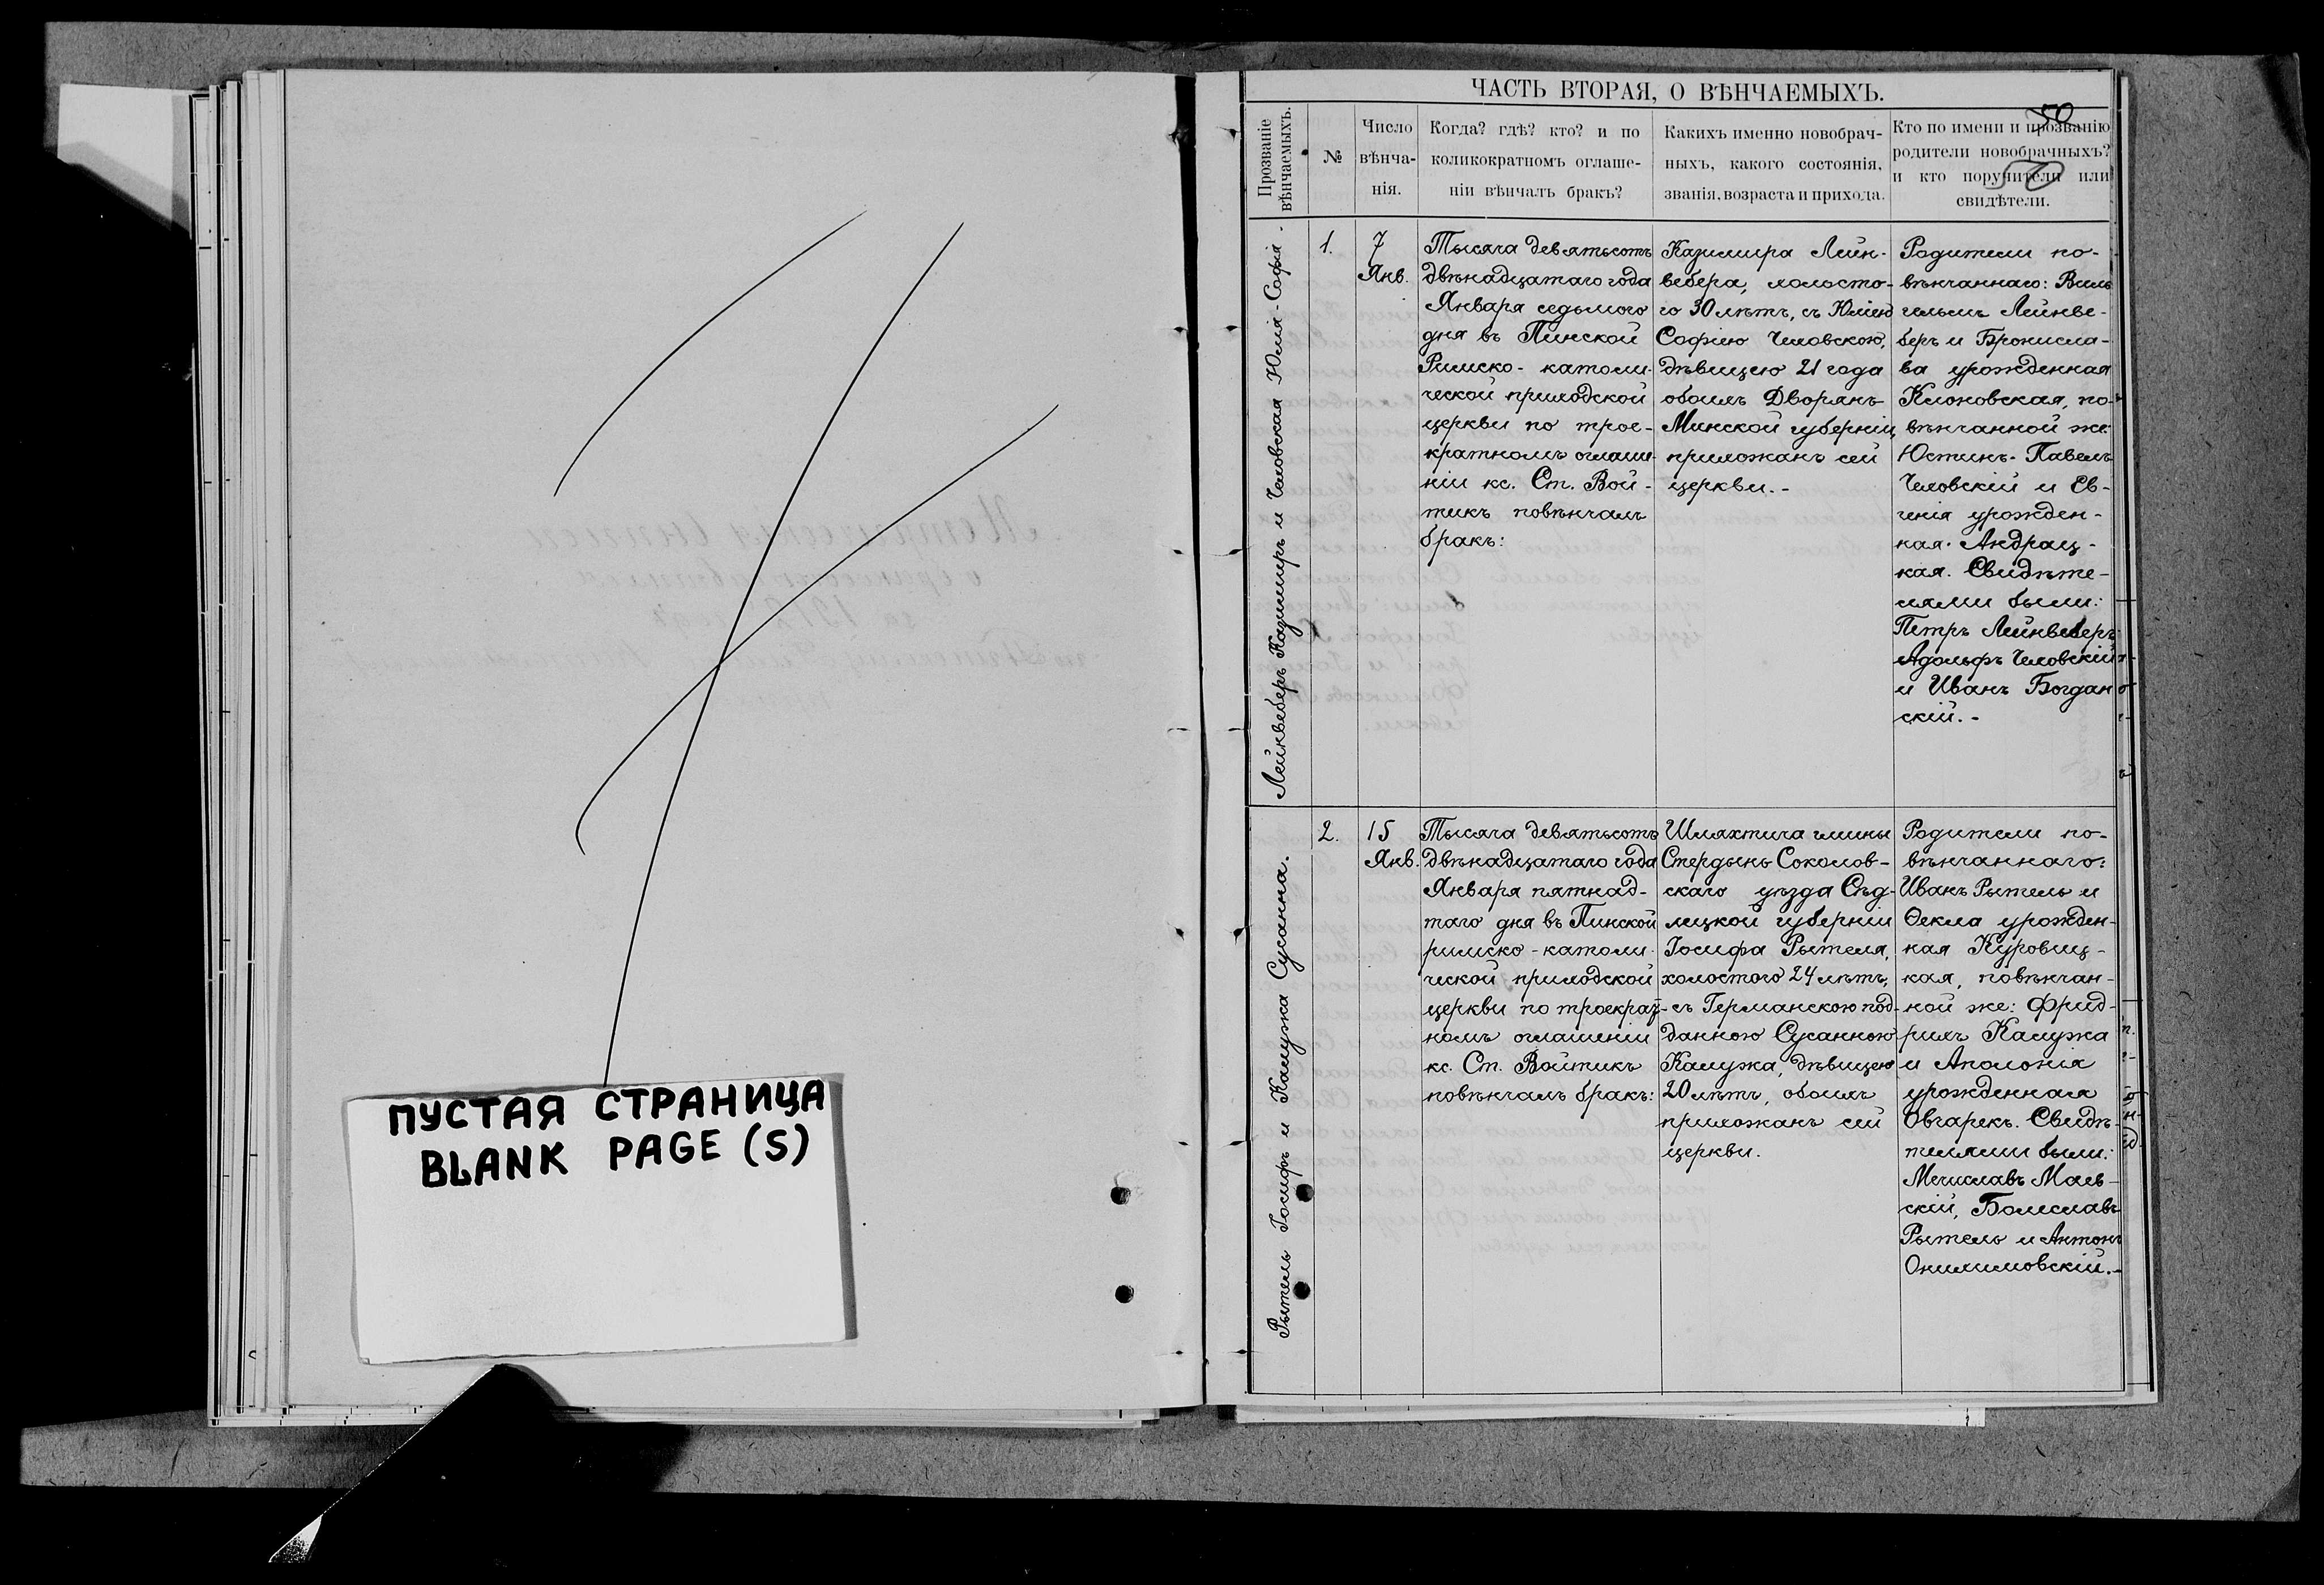 ПУСТАЯ СТРАНИЦА
BLANK PAGE (S)
ЧАСТЬ ВТОРАЯ, О ВѢНЧАЕМЫХЪ.
50
Прозваніе
вѣнчаемыхъ.
№
Число
вѣнча-
нія.
Когда? гдѣ? кто? и по
коликократномъ оглаше-
ніи вѣнчалъ бракъ?
Какихъ именно новобрач-
ныхъ, какого состоянія,
званія, возраста и прихода.
Кто по имени и прозванію
родители новобрачныхъ?
и кто поручители или
свидѣтели.
Лейнвеберъ Казимиръ и Чеховская Юлія-Софія-
1.
7
Янв.
Тысяча девятьсотъ
двѣнадцатаго года
Января седьмого
дня въ Пинской
Римско-католи-
ческой приходской
церкви по трое-
кратномъ оглаше-
ніи кс. Ст. Вой-
тикъ повѣнчалъ
бракъ:
Казимира Лейн-
вебера, холосто-
го 30 лѣтъ, съ Юліею
Софіею Чеховскою,
дѣвицею 21 года
обоихъ Дворянъ
Минской губерніи,
прихожанъ сей
церкви.-
Родители по-
вѣнчаннаго: Виль
гельмъ Лейнве-
беръ и Бронисла-
ва урожденная
Клоновская, по-
вѣнчанной же
Юстинъ-Павелъ
Чеховскій и Ев-
генія урожден-
ная Андрац-
кая. Свидѣте-
лями были:
Петръ Лейнвеберъ
Адольфъ Чеховскій
и Иванъ Богдан
скій.-
Рытель Іосифъ и Калужка Сусанна.
2.
15
Янв.
Тысяча девятьсотъ
двѣнадцатаго года
Января пятнад-
таго дня въ Пинской
римско-католи-
ческой приходской
церкви по троекрат-
номъ оглашеніи
кс. Ст. Войтикъ
повѣнчалъ бракъ:
Шляхтича гмины
Стердынь Соколов-
скаго уѣзда Сѣд-
лецкой губерніи
Іосифа Рытеля,
холостого 24 лѣтъ,
съ Германскою под-
данною Сусанною
Калужка, дѣвицею
20 лѣтъ, обоихъ
прихожанъ сей
церкви.
Родители по-
вѣнчаннаго:
Иванъ Рытель и
Ѳекла урожден-
ная Куровиц-
кая, повѣнчан-
ной же: Фрид-
рихъ Калужка
и Аполонія
урожденная
Овчарекъ. Свидѣ-
телями были:
Мечиславъ Маев-
скій, Болеславъ
Рытель и Антонъ